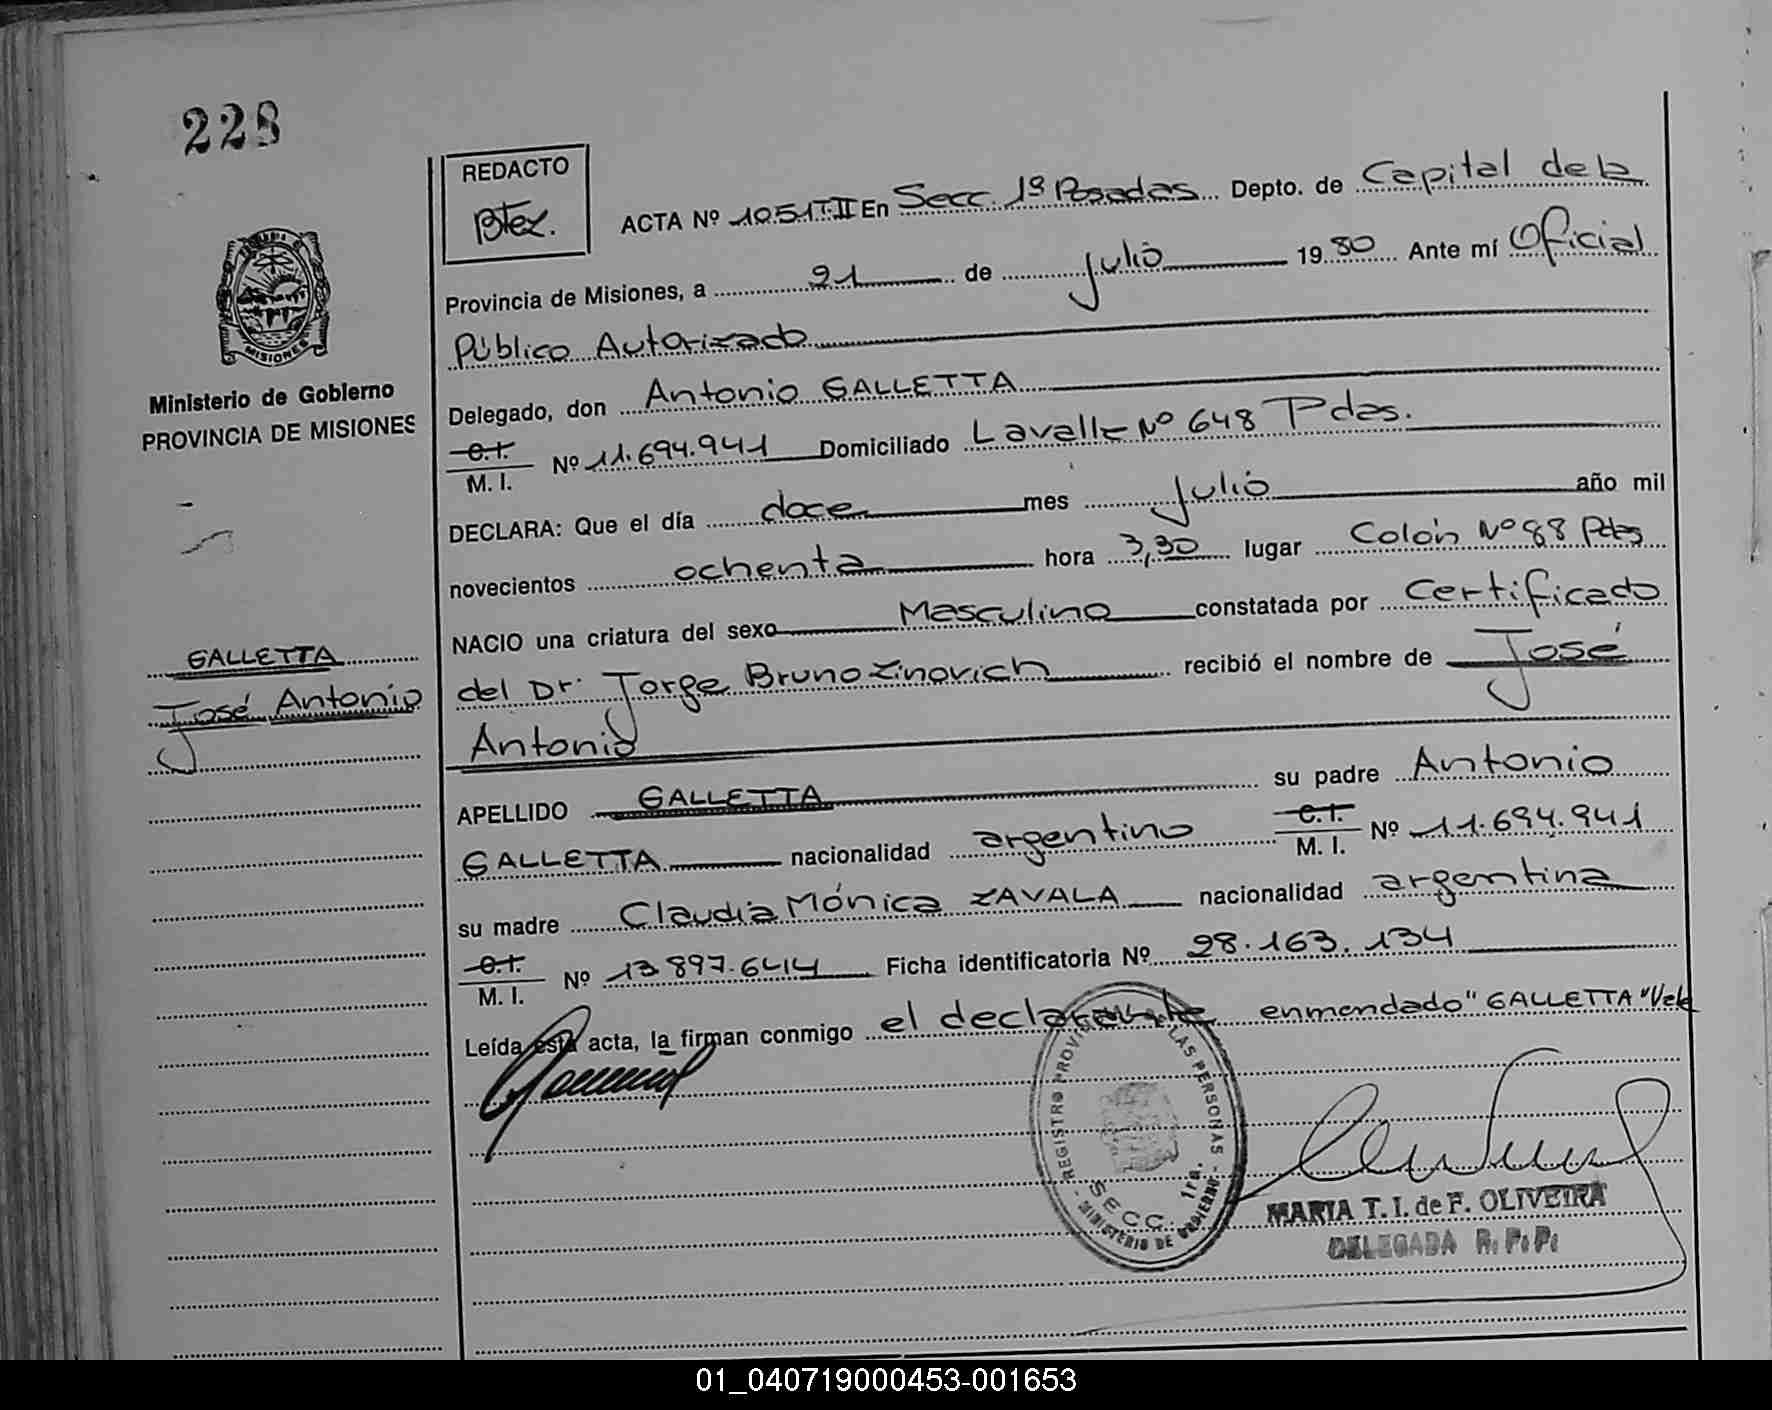 228
REDACTO
Btez.
ACTA Nº 1051 T. II En Secc. 1ª Posadas Depto. de Capital de la
Provincia de Misiones, a 21 de julio 1980 Ante mí Oficial
Público Autorizado
Delegado, don Antonio GALLETTA
C.I. M. I. Nº 11.694.941 Domiciliado Lavalle Nº 648 Pdas.
DECLARA: Que el día doce mes julio año mil
novecientos ochenta hora 3,30 lugar Colón Nº 88 Pdas
NACIO una criatura del sexo Masculino constatada por Certificado
del Dr. Jorge Bruno Zinovich recibió el nombre de José
Antonio
APELLIDO GALLETTA su padre Antonio
GALLETTA nacionalidad argentino C.I. M. I. Nº 11.694.941
su madre Claudia Mónica ZAVALA nacionalidad argentina
C.I. M. I. Nº 13.897.644 Ficha identificatoria Nº 28.163.134
Leída esta acta, la firman conmigo el declarante enmendado "GALLETTA" Vale
MISIONES
Ministerio de Gobierno
PROVINCIA DE MISIONES
GALLETTA
José Antonio
REGISTRO PROVI LAS PERSONAS
SECC. 1ra.
MINISTERIO DE GOBIERNO
MARIA T. I. de F. OLIVEIRA
DELEGADA R. P. P.
01_040719000453-001653